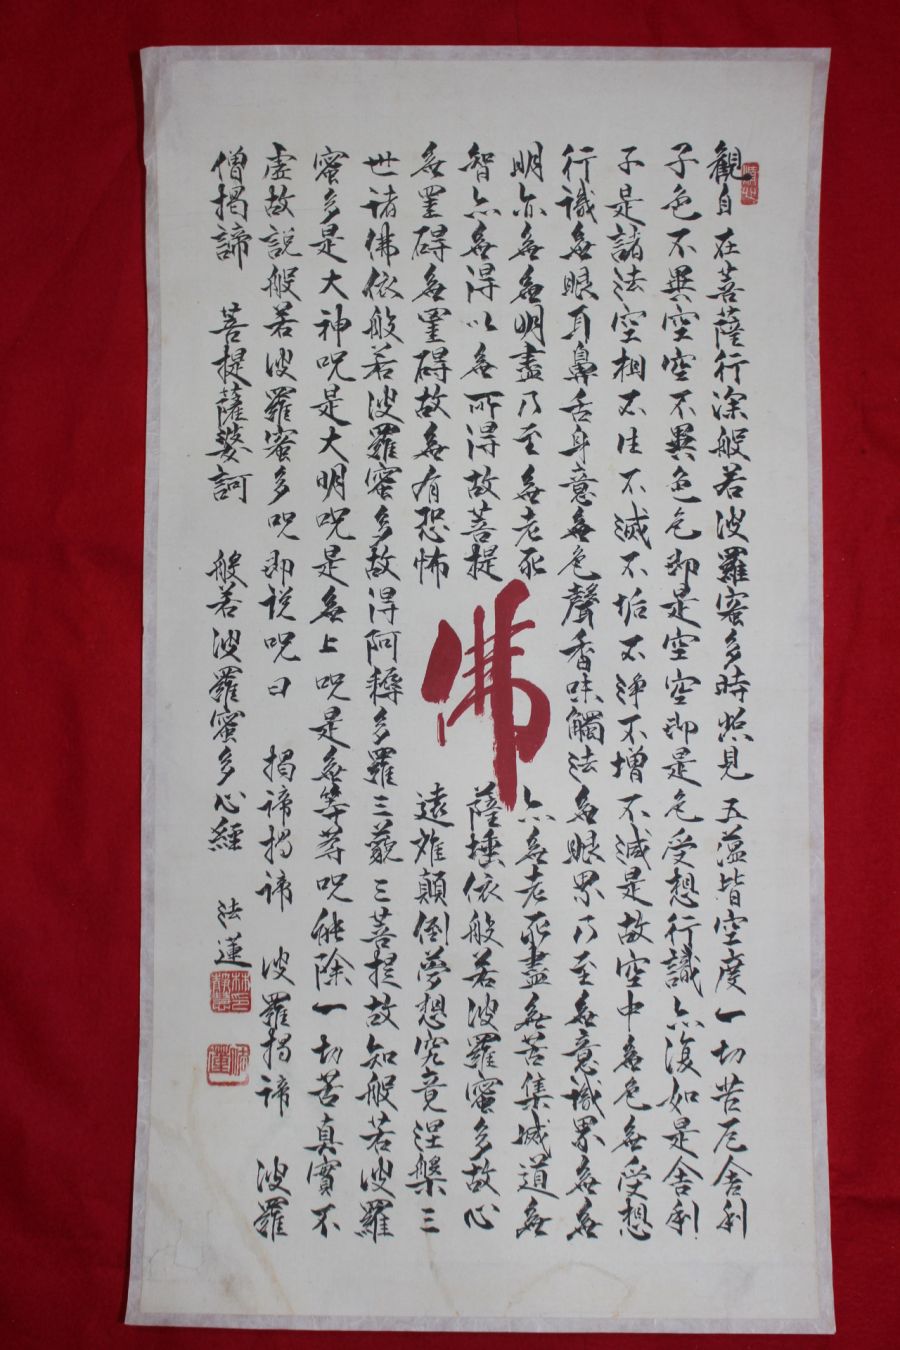 觀自在菩薩行深般若波羅蜜多時照見五蘊皆空度一切苦厄舍利
子色不異空空不異色色即是空空即是色受想行識亦復如是舍利
子是諸法空相不生不滅不垢不淨不增不減是故空中無色無受想
行識無眼耳鼻舌身意無色聲香味觸法無眼界乃至無意識界無無
明亦無無明盡乃至無老死 亦無老死盡無苦集滅道無
智亦無得以無所得故菩提 薩埵依般若波羅蜜多故心
無罣碍無罣碍故無有恐怖 遠離顛倒夢想究竟涅槃三
佛
世諸佛依般若波羅蜜多故得阿耨多羅三藐三菩提故知般若波羅
蜜多是大神呪是大明呪是無上呪是無等等呪能除一切苦真實不
虛故說般若波羅蜜多呪即說呪曰 揭諦揭諦 波羅揭諦 波羅
僧揭諦 菩提薩婆訶 般若波羅蜜多心經 法蓮